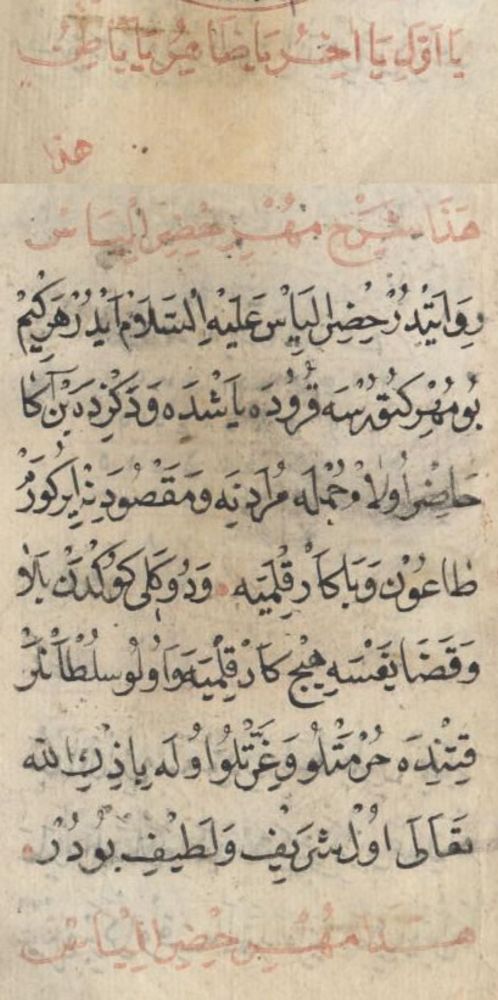 يا اوّل يا اخر يا ظاهر يا باطن
هذا
هذا شرح مهر حضر الياس
روايتدر حضر الياس عليه السلام ايدر هركيم
بو مهر كتورسه قروده ياشده و دكزده بن اكا
حاضر اولام و جمله مرادنه و مقصودينه ايركورم
طاعون و با كار قلميه و دوكلى كوكدن بلا
و قضا يغسه هيچ كار قلميه و اولو سلطانلر
قتنده حرمتلو و غرتلو اوله باذن الله
تعالى اول شريف و لطيف بودر
هذا مهر حضر الياس